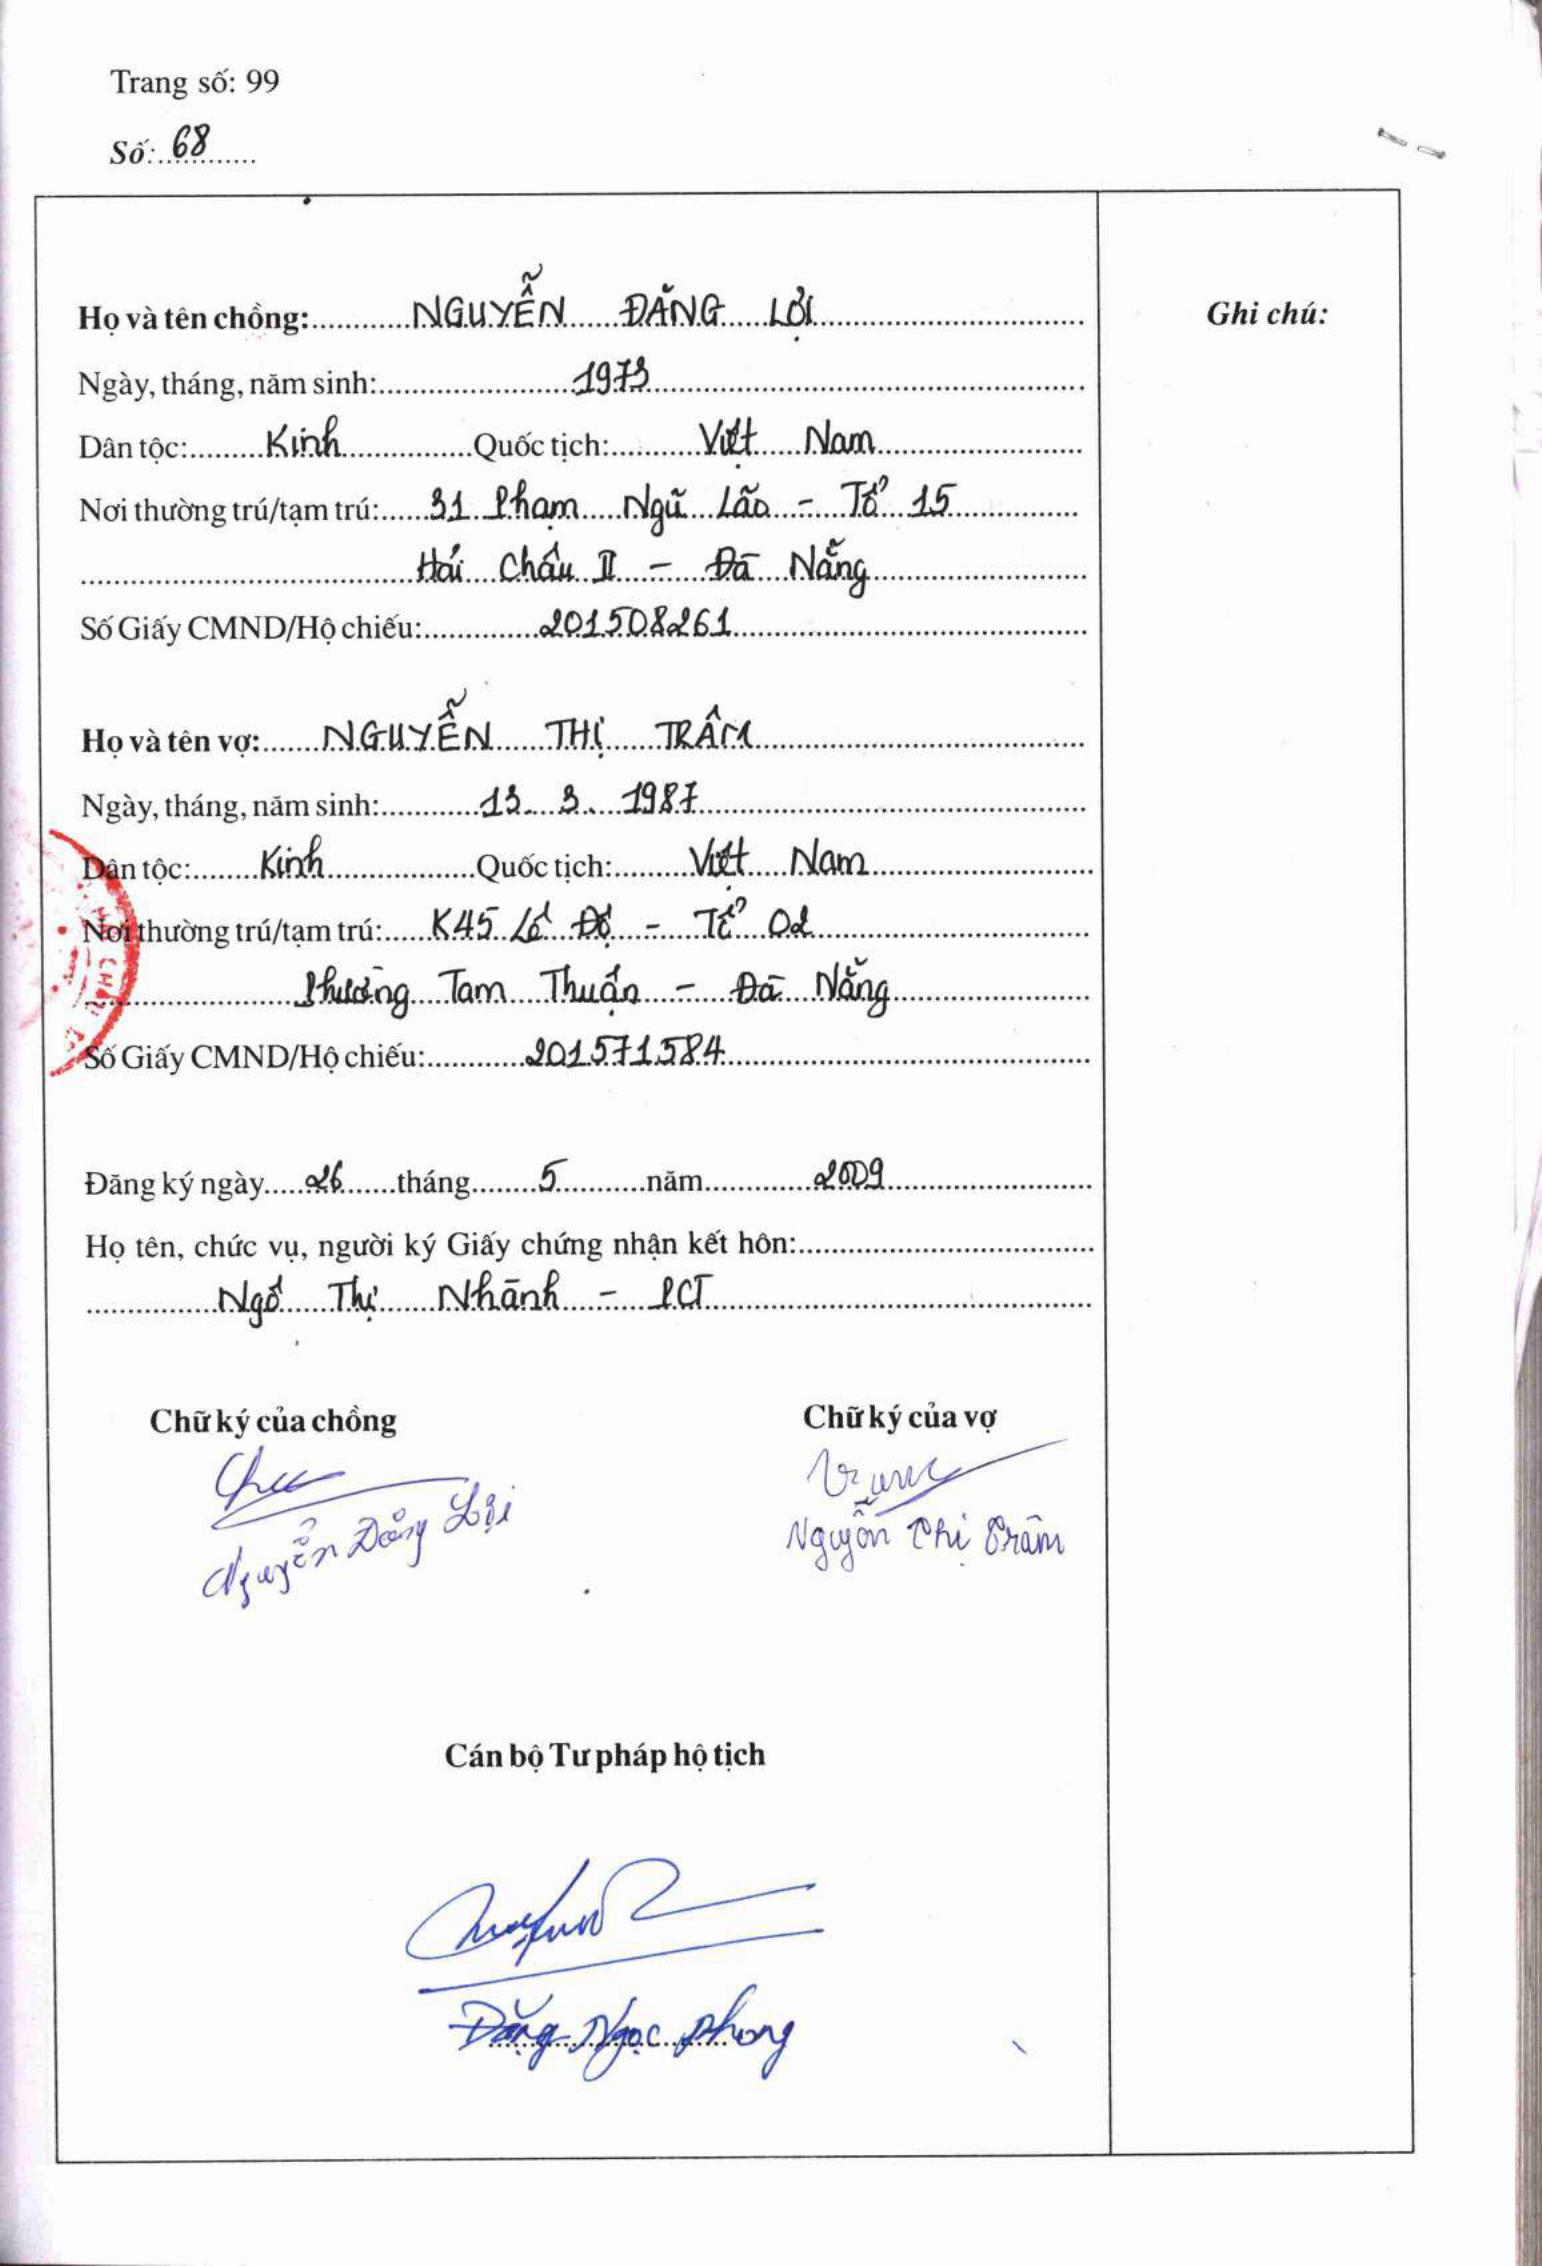 Trang số: 99
Số: 68
Họ và tên chồng: NGUYỄN ĐĂNG LỢI
Ghi chú:
Ngày, tháng, năm sinh: 1973
Dân tộc: Kinh Quốc tịch: Việt Nam
Nơi thường trú/tạm trú: 31 Phạm Ngũ Lão - Tổ 15
Hải Châu II - Đà Nẵng
Số Giấy CMND/Hộ chiếu: 201508261
Họ và tên vợ: NGUYỄN THỊ TRÂM
Ngày, tháng, năm sinh: 13. 3. 1987
Dân tộc: Kinh Quốc tịch: Việt Nam
Nơi thường trú/tạm trú: K45 Lê Độ - Tổ 02
Phường Tam Thuận - Đà Nẵng
Số Giấy CMND/Hộ chiếu: 201571584
Đăng ký ngày 26 tháng 5 năm 2009
Họ tên, chức vụ, người ký Giấy chứng nhận kết hôn:
Ngô Thị Nhành - PCT
Chữ ký của chồng Chữ ký của vợ
Nguyễn Đăng Lợi
Nguyễn Thị Trâm
Cán bộ Tư pháp hộ tịch
Đặng Ngọc Phong